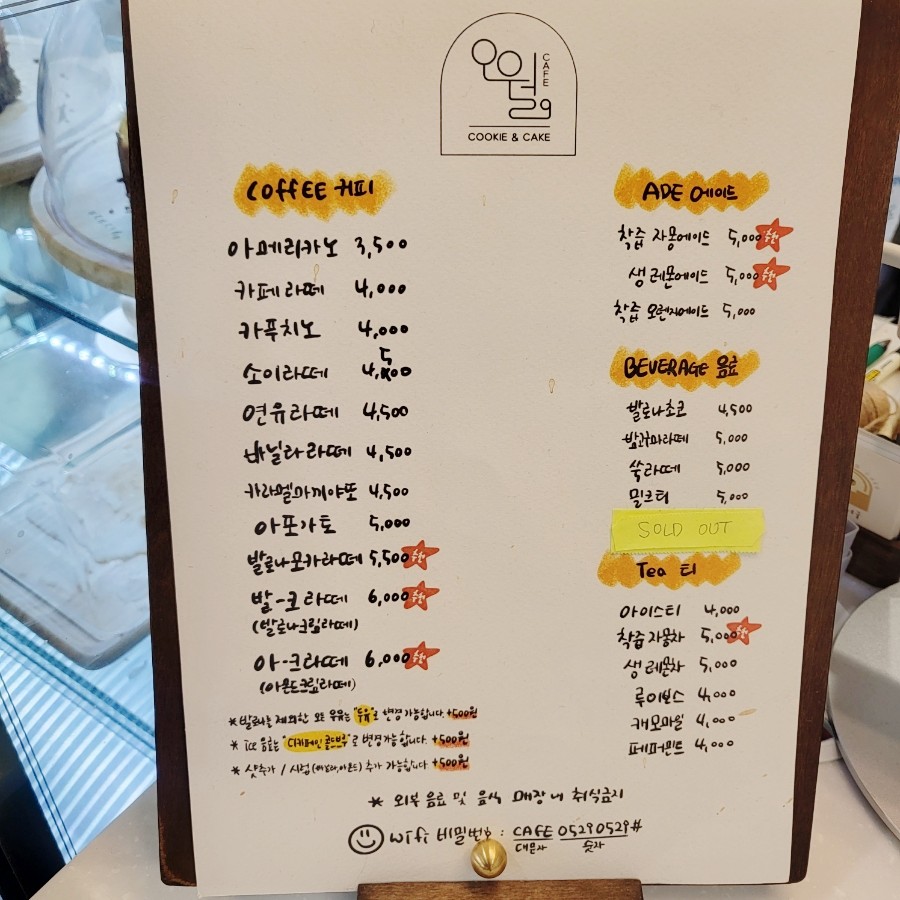 오월
CAFE
COOKIE & CAKE
COFFEE 커피
아메리카노 3,500
카페라떼 4,000
카푸치노 4,000
소이라떼 4,500
연유라떼 4,500
바닐라라떼 4,500
카라멜마끼야또 4,500
아포가토 5,000
발로나모카라떼 5,500 추천
발-크라떼 6,000 추천
(발로나크림라떼)
아-크라떼 6,000 추천
(아몬드크림라떼)
*발로나를 제외한 모든 우유는 "두유"로 변경가능합니다. +500원
* ice 음료는 "디카페인 콜드브루"로 변경가능합니다. +500원
* 샷추가 / 시럽(바닐라,아몬드) 추가 가능합니다 +500원
ADE 에이드
착즙 자몽에이드 5,000 추천
생 레몬에이드 5,000 추천
착즙 오렌지에이드 5,000
BEVERAGE 음료
발로나초코 4,500
밤고구마라떼 5,000
쑥라떼 5,000
밀크티 5,000
SOLD OUT
Tea 티
아이스티 4,000
착즙자몽차 5,000 추천
생 레몬차 5,000
루이보스 4,000
캐모마일 4,000
페퍼민트 4,000
* 외부 음료 및 음식 매장 내 취식금지
Wifi 비밀번호 : CAFE 05290529#
대문자 숫자